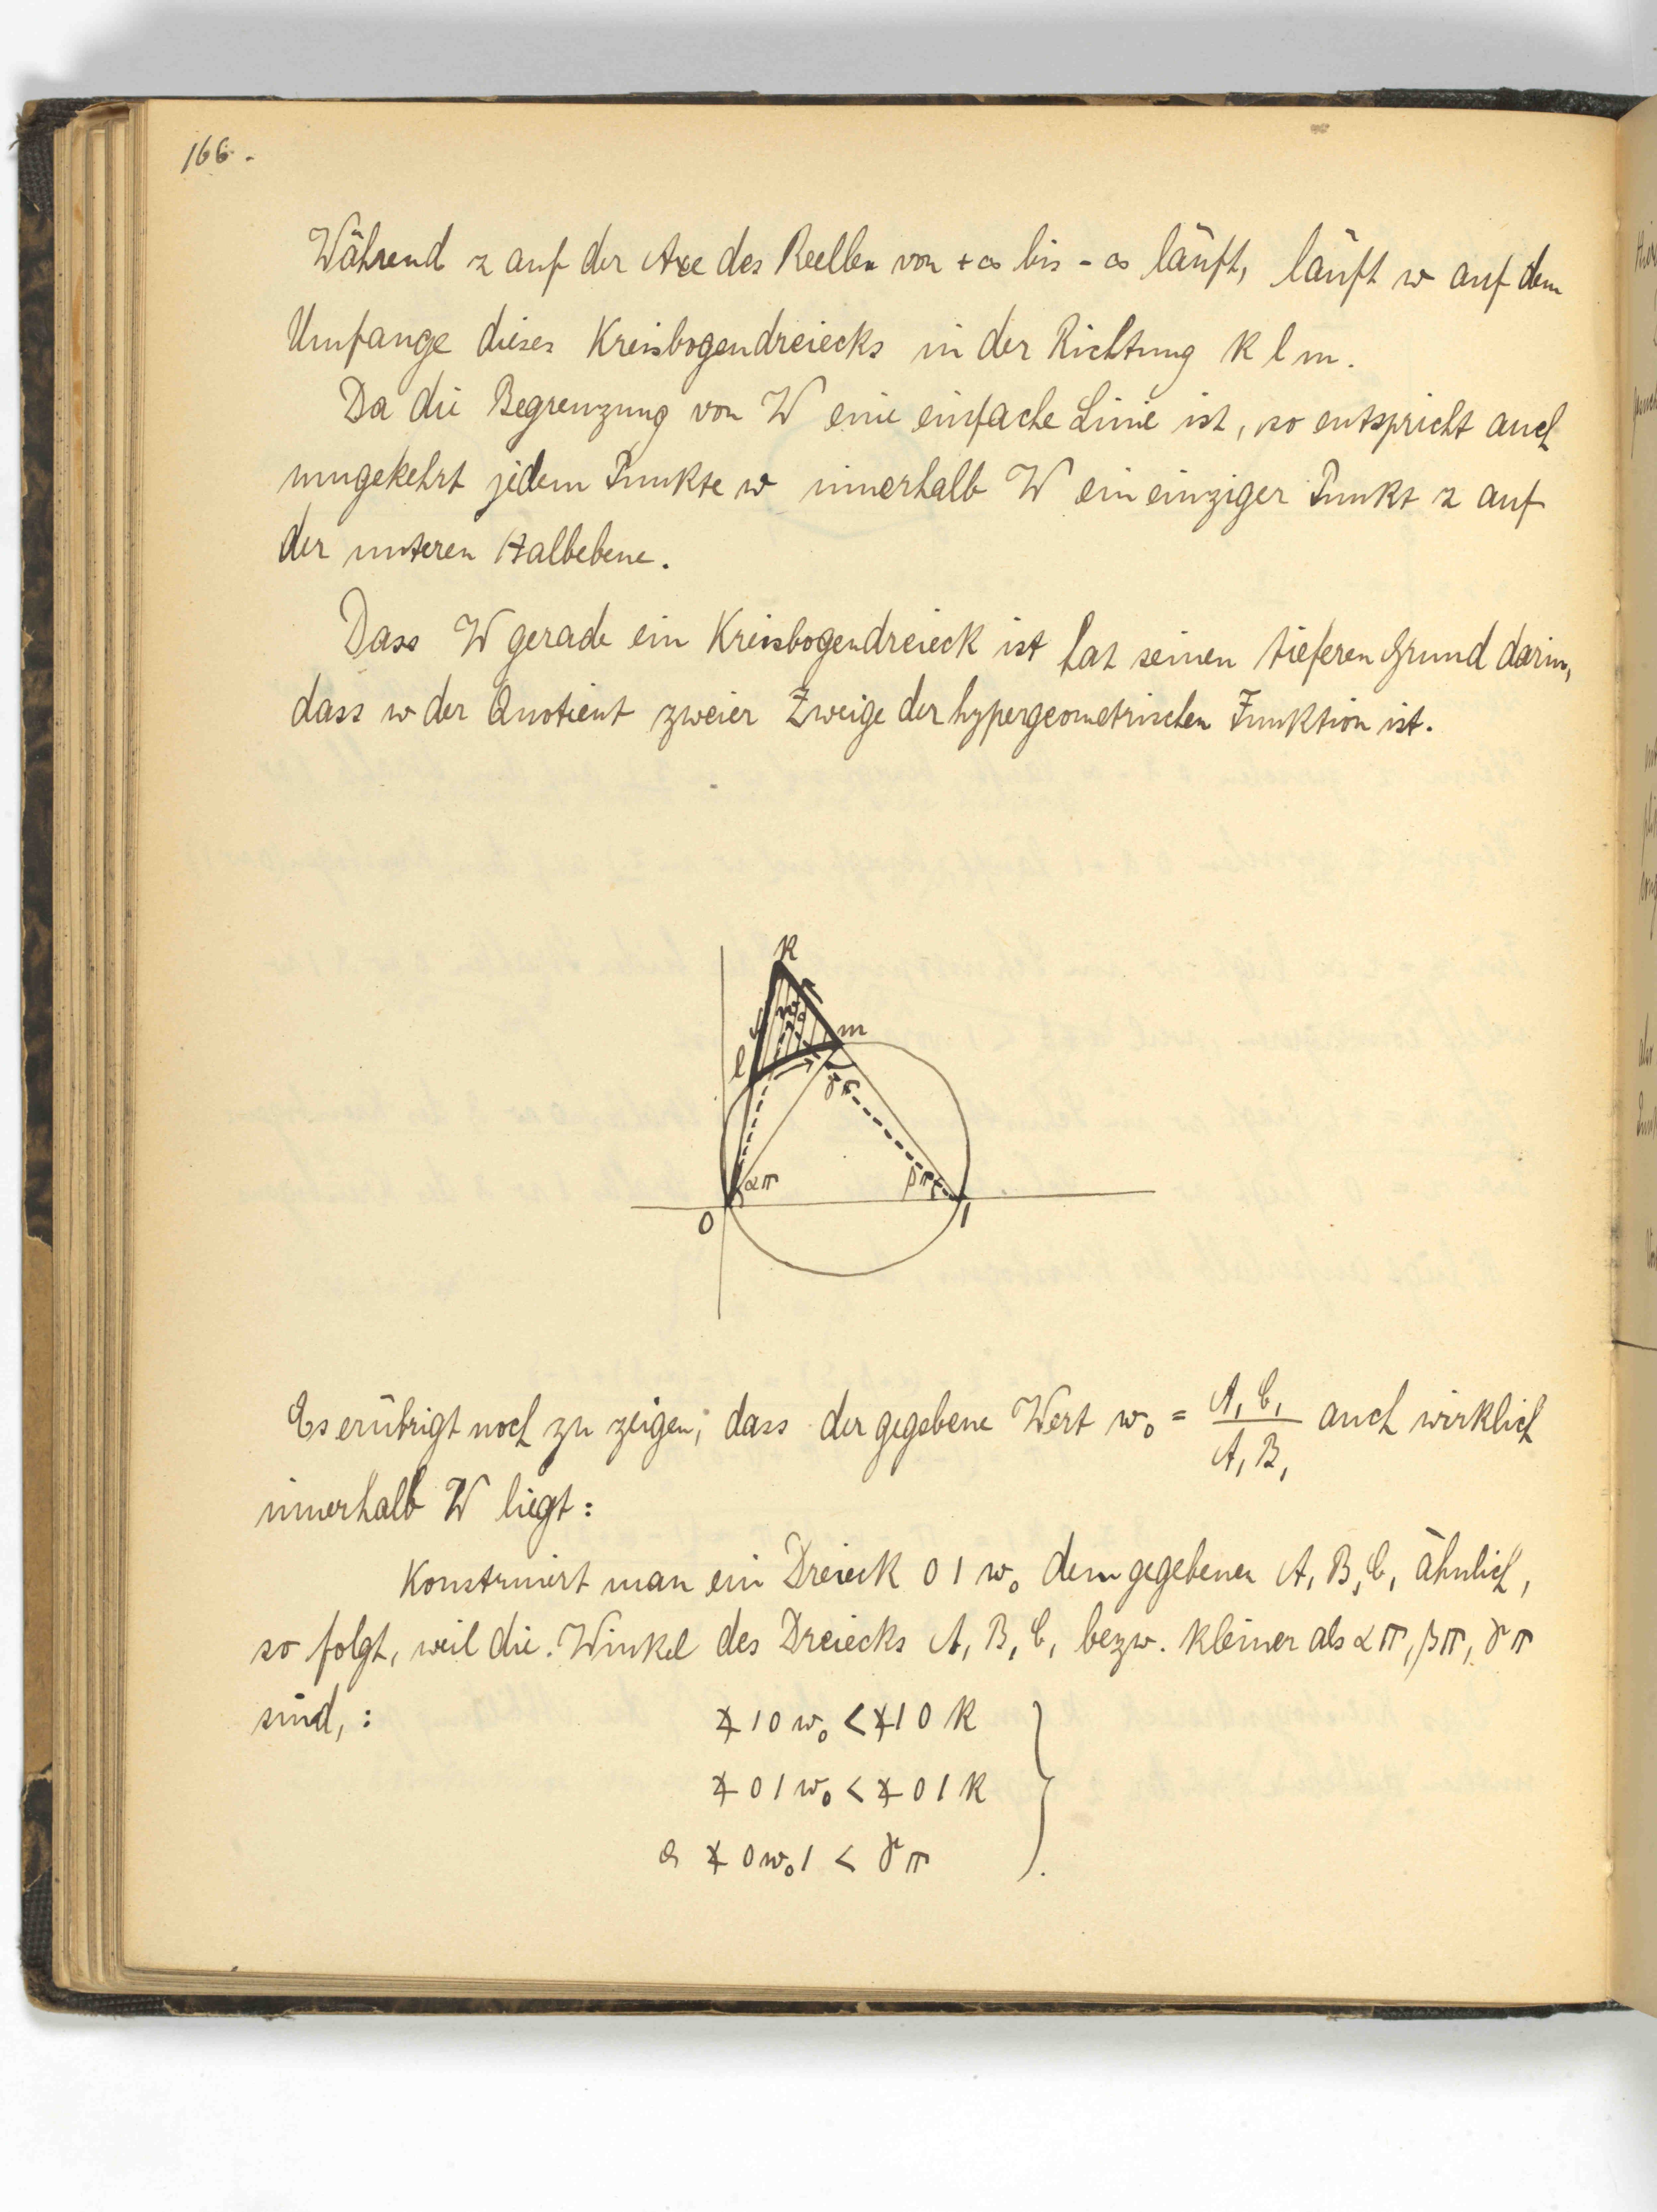 166.
Während z auf der Axe des Reellen von +∞ bis -∞ läuft, läuft w auf dem
Umfange dieses Kreisbogendreiecks in der Richtung k l m.
Da die Begrenzung von W eine einfache Linie ist, so entspricht auch
umgekehrt jedem Punkte w innerhalb W ein einziger Punkt z auf
der unteren Halbebene.
Dass W gerade ein Kreisbogendreieck ist hat seinen tieferen Grund darin,
dass w der Quotient zweier Zweige der hypergeometrischen Funktion ist.
k
w₀
m
l
γπ
απ
βπ
0
1
Es erübrigt noch zu zeigen, dass der gegebene Wert w₀ = A₁C₁/A₁B₁ auch wirklich
innerhalb W liegt:
Konstruiert man ein Dreieck 0 1 w₀ dem gegebenen A₁B₁C₁ ähnlich,
so folgt, weil die Winkel des Dreiecks A₁B₁C₁ bezw. kleiner als απ, βπ, γπ
sind,:
∢ 1 0 w₀ < ∢ 1 0 k
∢ 0 1 w₀ < ∢ 0 1 k
& ∢ 0 w₀ 1 < γπ